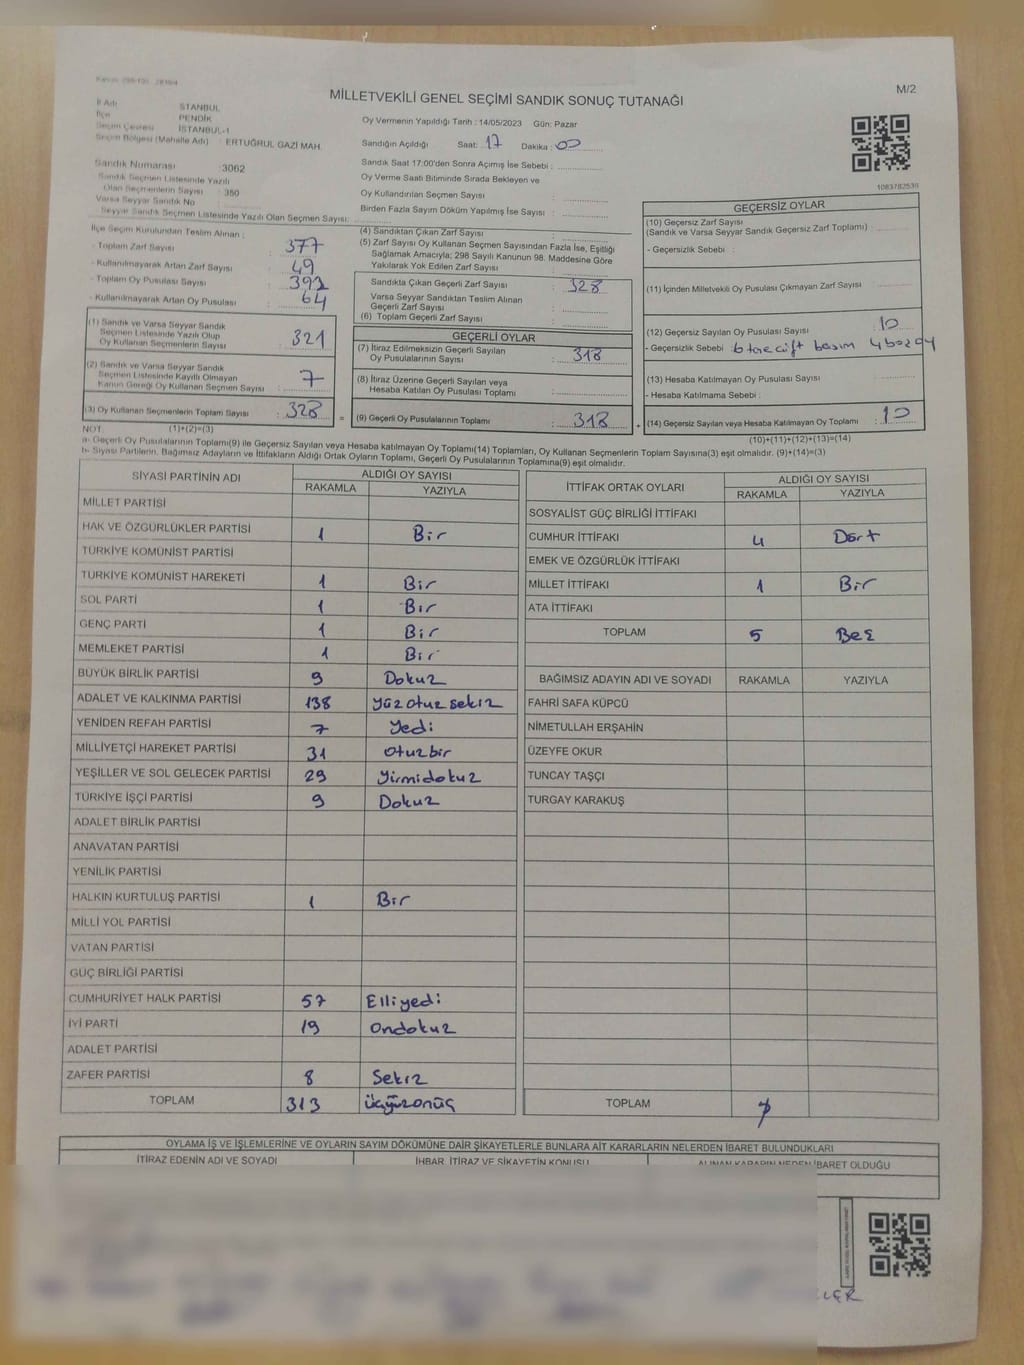 M/2
MİLLETVEKİLİ GENEL SEÇİMİ SANDIK SONUÇ TUTANAĞI
İl Adı : İSTANBUL
İlçe : PENDİK
Seçim Çevresi : İSTANBUL-1
Seçim Bölgesi (Mahalle Adı) : ERTUĞRUL GAZİ MAH.
Sandık Numarası : 3062
Sandık Seçmen Listesinde Yazılı
Olan Seçmenlerin Sayısı : 380
Varsa Seyyar Sandık No
Seyyar Sandık Seçmen Listesinde Yazılı Olan Seçmen Sayısı:
Oy Vermenin Yapıldığı Tarih : 14/05/2023 Gün: Pazar
Sandığın Açıldığı Saat: 17 Dakika : 00
Sandık Saat 17:00'den Sonra Açımış İse Sebebi :
Oy Verme Saati Bitiminde Sırada Bekleyen ve
Oy Kullandırılan Seçmen Sayısı :
Birden Fazla Sayım Döküm Yapılmış İse Sayısı :
1083782535
İlçe Seçim Kurulundan Teslim Alınan ;
- Toplam Zarf Sayısı : 377
- Kullanılmayarak Artan Zarf Sayısı : 49
- Toplam Oy Pusulası Sayısı : 392
- Kullanılmayarak Artan Oy Pusulası : 64
(1) Sandık ve Varsa Seyyar Sandık
Seçmen Listesinde Yazılı Olup
Oy Kullanan Seçmenlerin Sayısı : 321
(2) Sandık ve Varsa Seyyar Sandık
Seçmen Listesinde Kayıtlı Olmayan
Kanun Gereği Oy Kullanan Seçmen Sayısı : 7
(3) Oy Kullanan Seçmenlerin Toplam Sayısı : 328
(4) Sandıktan Çıkan Zarf Sayısı :
(5) Zarf Sayısı Oy Kullanan Seçmen Sayısından Fazla İse, Eşitliği
Sağlamak Amacıyla; 298 Sayılı Kanunun 98. Maddesine Göre
Yakılarak Yok Edilen Zarf Sayısı :
Sandıkta Çıkan Geçerli Zarf Sayısı : 328
Varsa Seyyar Sandıktan Teslim Alınan
Geçerli Zarf Sayısı :
(6) Toplam Geçerli Zarf Sayısı :
GEÇERLİ OYLAR
(7) İtiraz Edilmeksizin Geçerli Sayılan
Oy Pusulalarının Sayısı : 318
(8) İtiraz Üzerine Geçerli Sayılan veya
Hesaba Katılan Oy Pusulası Toplamı :
= (9) Geçerli Oy Pusulalarının Toplamı : 318 +
GEÇERSİZ OYLAR
(10) Geçersiz Zarf Sayısı
(Sandık ve Varsa Seyyar Sandık Geçersiz Zarf Toplamı) :
- Geçersizlik Sebebi :
(11) İçinden Milletvekili Oy Pusulası Çıkmayan Zarf Sayısı
(12) Geçersiz Sayılan Oy Pusulası Sayısı 10
- Geçersizlik Sebebi
(13) Hesaba Katılmayan Oy Pusulası Sayısı
- Hesaba Katılmama Sebebi :
(14) Geçersiz Sayılan veya Hesaba Katılmayan Oy Toplamı : 10
NOT: (1)+(2)=(3) (10)+(11)+(12)+(13)=(14)
a- Geçerli Oy Pusulalarının Toplamı(9) ile Geçersiz Sayılan veya Hesaba katılmayan Oy Toplamı(14) Toplamları, Oy Kullanan Seçmenlerin Toplam Sayısına(3) eşit olmalıdır. (9)+(14)=(3)
b- Siyasi Partilerin, Bağımsız Adayların ve İttifakların Aldığı Ortak Oyların Toplamı, Geçerli Oy Pusulalarının Toplamına(9) eşit olmalıdır.
SİYASİ PARTİNİN ADI ALDIĞI OY SAYISI
RAKAMLA YAZIYLA
MİLLET PARTİSİ
HAK VE ÖZGÜRLÜKLER PARTİSİ 1 Bir
TÜRKİYE KOMÜNİST PARTİSİ
TÜRKİYE KOMÜNİST HAREKETİ 1 Bir
SOL PARTİ 1 Bir
GENÇ PARTİ 1 Bir
MEMLEKET PARTİSİ 1 Bir
BÜYÜK BİRLİK PARTİSİ 9 Dokuz
ADALET VE KALKINMA PARTİSİ 138 Yüzotuzsekiz
YENİDEN REFAH PARTİSİ 7 Yedi
MİLLİYETÇİ HAREKET PARTİSİ 31 Otuzbir
YEŞİLLER VE SOL GELECEK PARTİSİ 29 Yirmidokuz
TÜRKİYE İŞÇİ PARTİSİ 9 Dokuz
ADALET BİRLİK PARTİSİ
ANAVATAN PARTİSİ
YENİLİK PARTİSİ
HALKIN KURTULUŞ PARTİSİ 1 Bir
MİLLİ YOL PARTİSİ
VATAN PARTİSİ
GÜÇ BİRLİĞİ PARTİSİ
CUMHURİYET HALK PARTİSİ 57 Elliyedi
İYİ PARTİ 19 Ondokuz
ADALET PARTİSİ
ZAFER PARTİSİ 8 Sekiz
TOPLAM 313 Üçyüzonüç
İTTİFAK ORTAK OYLARI ALDIĞI OY SAYISI
RAKAMLA YAZIYLA
SOSYALİST GÜÇ BİRLİĞİ İTTİFAKI
CUMHUR İTTİFAKI 4 Dört
EMEK VE ÖZGÜRLÜK İTTİFAKI
MİLLET İTTİFAKI 1 Bir
ATA İTTİFAKI
TOPLAM 5 Beş
BAĞIMSIZ ADAYIN ADI VE SOYADI RAKAMLA YAZIYLA
FAHRİ SAFA KÜPCÜ
NİMETULLAH ERŞAHİN
ÜZEYFE OKUR
TUNCAY TAŞÇI
TURGAY KARAKUŞ
TOPLAM
OYLAMA İŞ VE İŞLEMLERİNE VE OYLARIN SAYIM DÖKÜMÜNE DAİR ŞİKAYETLERLE BUNLARA AİT KARARLARIN NELERDEN İBARET BULUNDUKLARI
İTİRAZ EDENİN ADI VE SOYADI İHBAR, İTİRAZ VE ŞİKAYETİN KONUSU ALINAN KARARIN NEDEN İBARET OLDUĞU